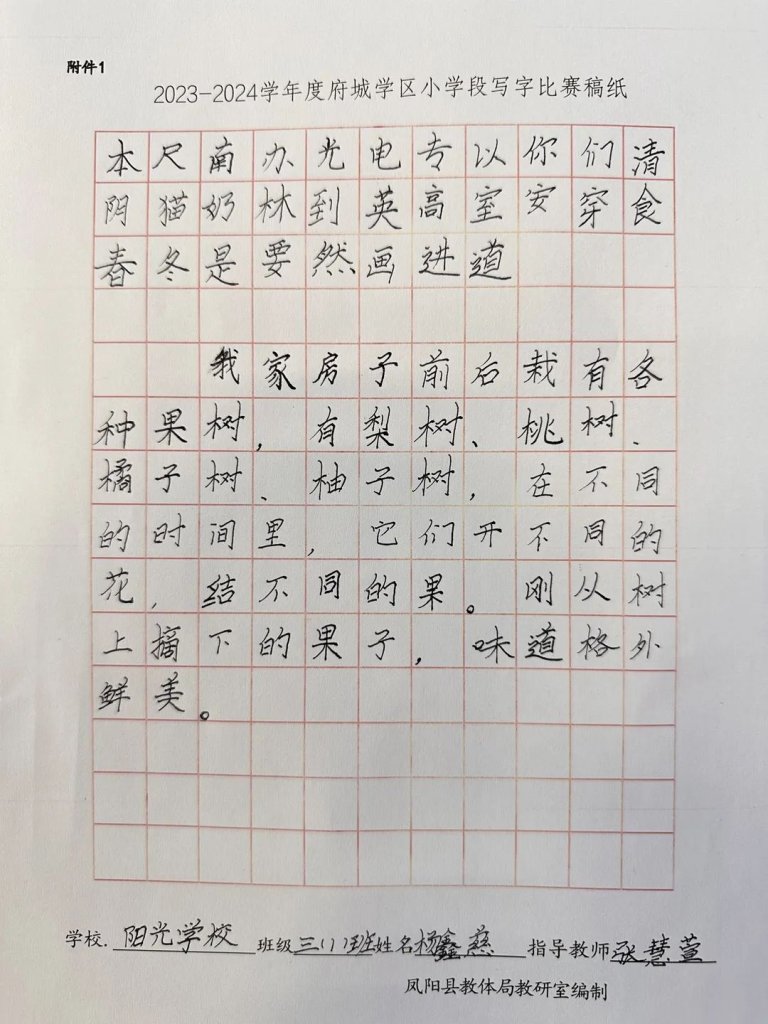 附件1
2023-2024学年度府城学区小学段写字比赛稿纸
本尺南办光电专以你们清
阴猫奶林到英高室安穿食
春冬是要然画进道
我家房子前后栽有各
种果树，有梨树、桃树、
橘子树、柚子树，在不同
的时间里，它们开不同的
花，结不同的果。刚从树
上摘下的果子，味道格外
鲜美。
学校.阳光学校班级三（1）班姓名杨鑫慈指导教师张慧萱
凤阳县教体局教研室编制